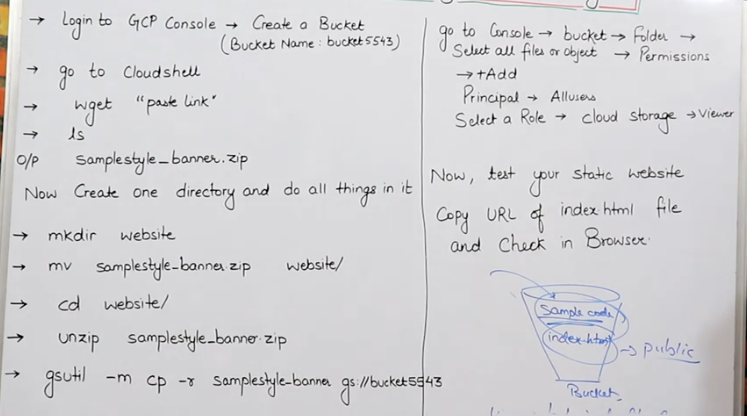 → Login to GCP Console → Create a Bucket
(Bucket Name: bucket5543)
→ go to Cloudshell
→ wget "paste link"
→ ls
O/P samplestyle_banner.zip
Now Create one directory and do all things in it
→ mkdir website
→ mv samplestyle_banner.zip website/
→ cd website/
→ unzip samplestyle_banner.zip
→ gsutil -m cp -r samplestyle_banner gs://bucket5543
go to Console → bucket → Folder →
Select all files or object → Permissions
→ +Add
Principal → Allusers
Select a Role → cloud storage → Viewer
Now, test your static website
Copy URL of index.html file
and Check in Browser.
Sample code
index.html
→ public
Bucket